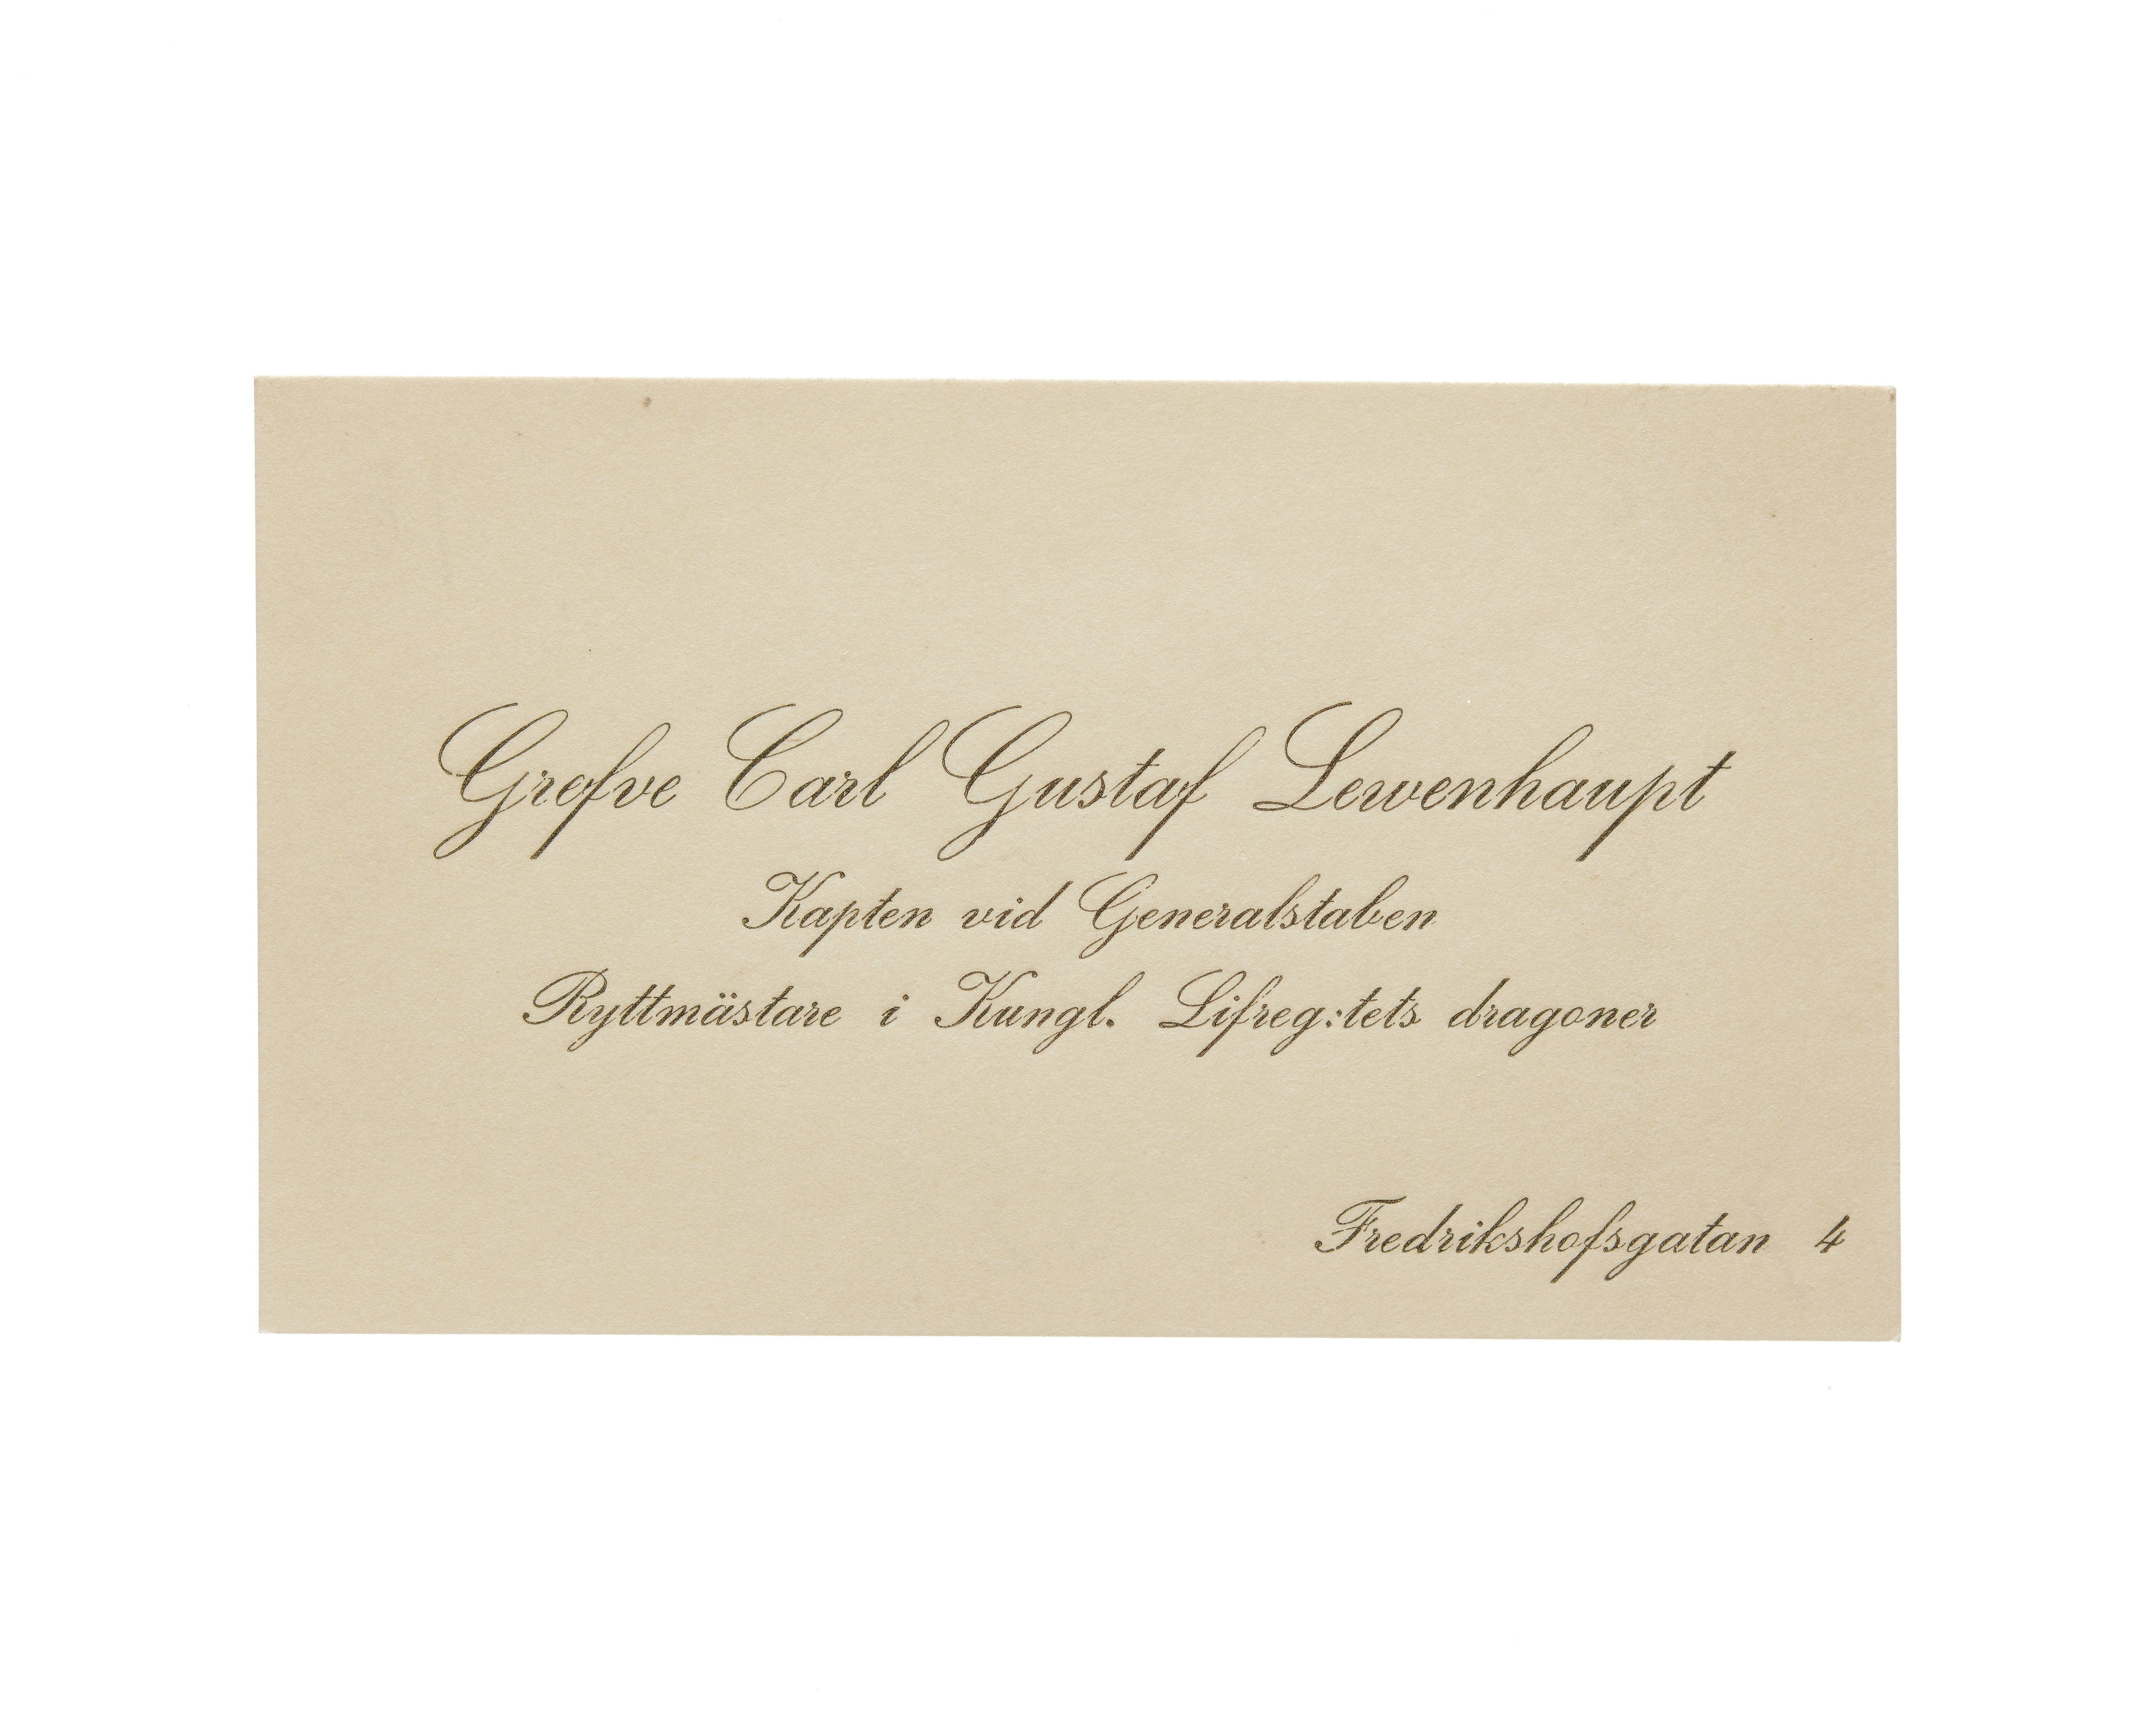 Grefve Carl Gustaf Lewenhaupt
Kapten vid Generalstaben
Ryttmästare i Kungl. Lifreg:tets dragoner
Fredrikshofsgatan 4